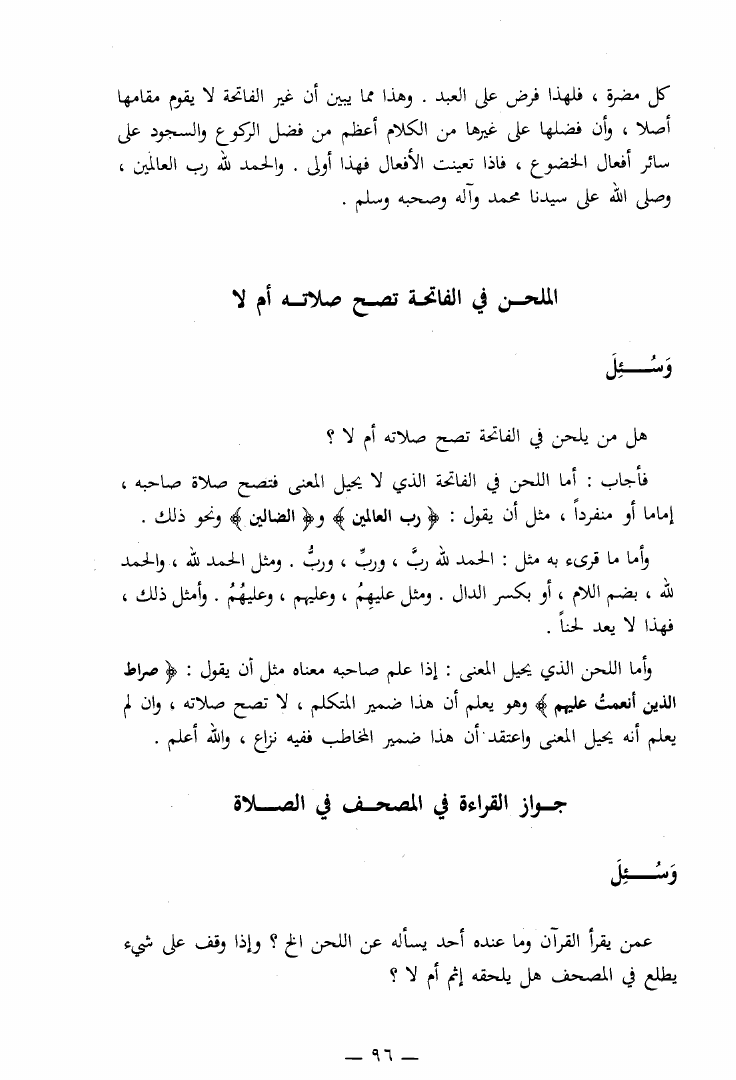 كل مضرة ، فلهذا فرض على العبد . وهذا مما يبين أن غير الفاتحة لا يقوم مقامها
أصلا ، وأن فضلها على غيرها من الكلام أعظم من فضل الركوع والسجود على
سائر أفعال الخضوع ، فاذا تعينت الأفعال فهذا أولى . والحمد لله رب العالمين ،
وصلى الله على سيدنا محمد وآله وصحبه وسلم .
الملحــن في الفاتحــة تصــح صلاتــه أم لا
وَسُــــئِلَ
هل من يلحن في الفاتحة تصح صلاته أم لا ؟
فأجاب : أما اللحن في الفاتحة الذي لا يحيل المعنى فتصح صلاة صاحبه ،
إماما أو منفرداً ، مثل أن يقول : ﴿ رب العالمين ﴾ و﴿ الضالين ﴾ ونحو ذلك .
وأما ما قرىء به مثل : الحمد لله ربَّ ، وربِّ ، وربُّ . ومثل الحمد لله ، والحمد
لله ، بضم اللام ، أو بكسر الدال . ومثل عليهِمُ ، وعليهم ، وعليهُمُ . وأمثل ذلك ،
فهذا لا يعد لحناً .
وأما اللحن الذي يحيل المعنى : إذا علم صاحبه معناه مثل أن يقول : ﴿ صراط
الذين أنعمتُ عليهم ﴾ وهو يعلم أن هذا ضمير المتكلم ، لا تصح صلاته ، وان لم
يعلم أنه يحيل المعنى واعتقد أن هذا ضمير المخاطب ففيه نزاع ، والله أعلم .
جــواز القراءة في المصحــف في الصــــلاة
وَسُــــئِلَ
عمن يقرأ القرآن وما عنده أحد يسأله عن اللحن الخ ؟ وإذا وقف على شيء
يطلع في المصحف هل يلحقه إثم أم لا ؟
— ٩٦ —